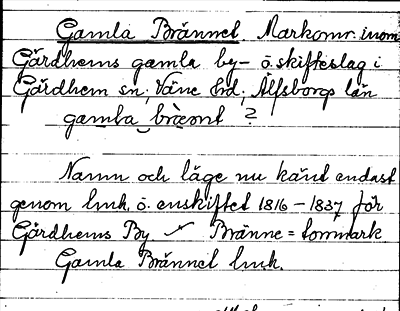 Gamla Brännet Markomr. inom
Gärdhems gamla by- o. skifteslag i
Gärdhem sn; Väne hd; Älfsborgs län
gamla brännt ?
Namn och läge nu känt endast
genom lmk. o. enskiftet 1816 - 1837 för
Gärdhems By Bränne = tommark
Gamla Brännet lmk.